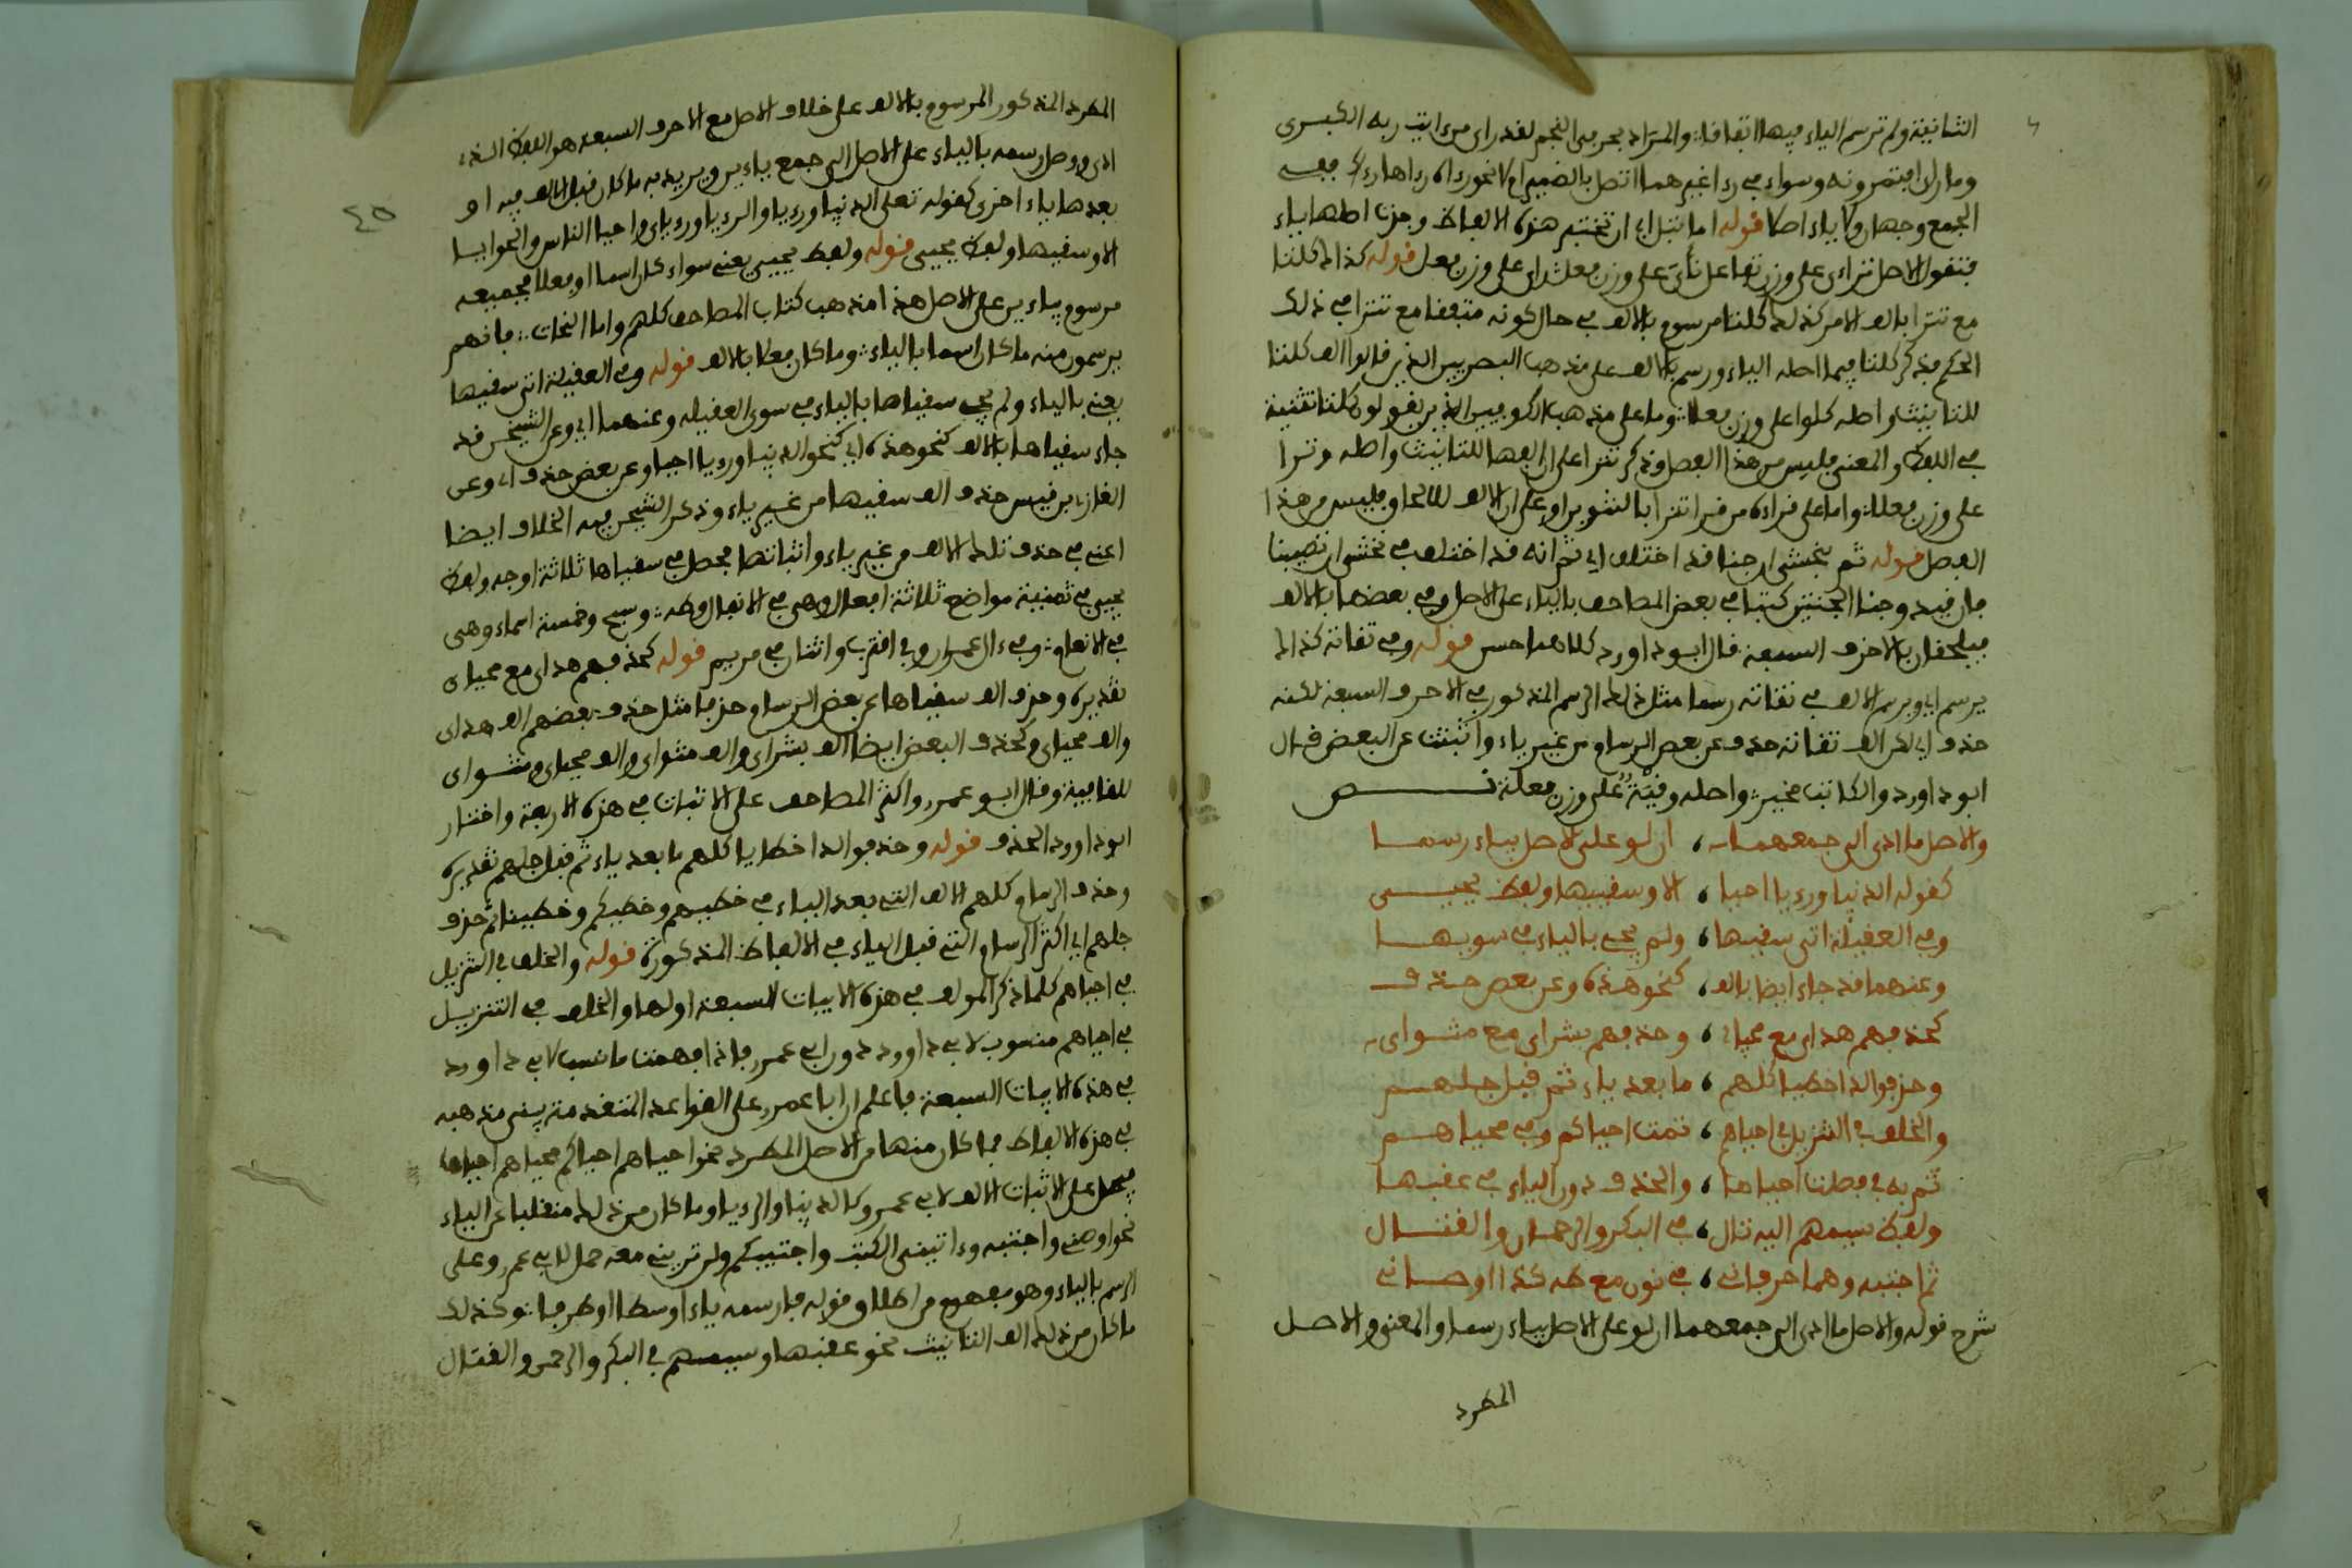 الثانية ولم ترسم الياء فيها اتفاقا والمراد بحرفي النجم لقد راى من ايت ربه الكبرى
وما راى افتمرونه وسواء في رءا غيرهما اتصل بالضمير ام لا نحو رءا كوكبا رءاها رءاك ففيه
الجمع وجهان ولا ياء اصلا قوله اما قبل اي ان تختبر هذه الالفاظ وجدت اصلها ياء
فتقول الاصل تراءى على وزن تفاعل نأى على وزن فعل راى على وزن فعل قوله كذاك كلتا
مع تترا بالف الامر كذلك كلتا مرسوم بالالف في حال كونه متفقا مع تترا في ذلك
الحكم فذكر كلتا فيما اصله الياء ورسم بالالف على مذهب البصريين الذين قالوا الف كلتا
للتانيث واصله كلوا على وزن فعلا وما على مذهب الكوفيين الذين يقولون كلتا تثنية
في اللفظ والمعنى فليس من هذا الفصل وذكر تترا على ان الفها للتانيث واصله وترا
على وزن فعلا واما على قراءة من قرا تترا بالتنوين او على ان الالف للالحاق فليس من هذا
الفصل قوله ثم نخشى ان جنا قد اختلف اي ثم انه قد اختلف في نخشى ان تصيبنا
فان قيد وجنا الجنتين كتبا في بعض المصاحف بالياء على الاصل وفي بعضها بالالف
فيلحقان بالاحرف السبعة قال ابو داوود كلاهما حسن قوله وفي تقاته كذاك
يرسم اي ويرسم الالف في تقاته رسما مثل ذلك الرسم المذكور في الاحرف السبعة لكنه
حذف اي لكن الف تقاته حذف عن بعض الرسام من غير ياء واثبتت عن البعض قال
ابو داوود والكاتب مخير واصله وقية على وزن فعلة نص
والاصل ما ادى الى جمعهما ، ان لو على الاصل بياء رسما
كقوله الدنيا ورءيا احيا ، الا وسقييها ولفظ يحيى
وفي العقيلة اتى سقييها ، ولم يجئ بالياء في سويها
وعنهما قد جاء ايضا بالالف ، كنحو هذه وعن بعض حذف
كحذفهم هداي مع محياي ، وحذفهم بشراي مع مثواي
وحذفوا لدا خطيا كلهم ، ما بعد ياء ثم قبل جلهم
والخلف في التنزيل في احياهم ، ثمت احياكم وفي محياهم
ثم به في فصلت احياها ، والحذف دون الياء في عقبها
ولفظ سيمهم اليه تال ، في البكر والرحمان والقتال
ثم اجتبيه وهما حرفان ، في نون مع طه كذا اوصاني
شرح قوله والاصل ما ادى الى جمعهما ان لو على الاصل بياء رسما والمعنى والاصل
المطرد
٤٥
المطرد المذكور المرسوم بالالف على خلاف الاصل مع الاحرف السبعة هو اللفظ الذي
ادى ووصل رسمه بالياء على الاصل الى جمع ياءين ويريد به ما كان قبل الالف فيه او
بعدها ياء اخرى كقوله تعلى الدنيا ورءيا والرءيا ورءياي واحيا الناس والحوايا
الا وسقييها ولفظ يحيى قوله ولفظ يحيى يعني سواء كان اسما او فعلا فجميعه
مرسوم بياءين على الاصل هذا مذهب كتاب المصاحف كلهم واما النحات فانهم
يرسمون منه ما كان اسما بالياء وما كان فعلا بالالف قوله وفي العقيلة اتى سقييها
يعني بالياء ولم يجئ سقياها بالياء في سوى العقيلة وعنهما اي وعن الشيخين قد
جاء سقياها بالالف كنحو هذه اي كنحو الدنيا ورءيا احيا وعن بعض حذف اي وعن
الغازي بن قيس حذف الف سقيها من غير ياء وذكر الشيخين فيه الخلاف ايضا
اعني في حذف تلك الالف من غير ياء واثباتها فحصل في سقياها ثلاثة اوجه ولفظ
يحيى في ثمنية مواضع ثلاثة افعال وهي في الانفال وطه وسبح وخمسة اسماء وهي
في الانعام وفي ءال عمران وفي اقترب واثنان في مريم قوله كحذفهم هداي مع محياي
تقديره وحذف الف سقياها عن بعض الرسام حذفا مثل حذف بعضهم الف هداي
والف محياي وكحذف البعض ايضا الف بشراي والف مثواي والف محياي ومثواي
للقافية وقال ابو عمرو واكثر المصاحف على الاثبات في هذه الاربعة واختار
ابو داوود الحذف قوله وحذفوا لدا خطايا كلهم ما بعد ياء ثم قبل جلهم تقديره
وحذف الرسام كلهم الالف التي بعد الياء في خطيهم وخطيكم وخطينا ثم حذف
جلهم اي اكثر الرسام التي قبل الياء في الالفاظ المذكورة قوله والخلف في التنزيل
في احياهم كلما ذكر المولف في هذه الابيات السبعة اولها والخلف في التنزيل
في احياهم منسوب لابي داوود دون ابي عمرو فاذا فهمت ما نسب لابي داوود
في هذه الابيات السبعة فاعلم ان ابا عمرو على القواعد المتقدمة يبنى مذهبه
في هذه الالفاظ فما كان منها من الاصل المطرد نحو احياهم احياكم محياهم احياها
فيحمل على اثبات الالف لابي عمرو كالدنيا والرءيا وما كان من ذلك منقلبا عن الياء
نحو اوصني واجتبيه وءاتيني الكتب واجتبيكم ولن تريني معه حمل لابي عمرو على
الرسم بالياء وهو مفهوم من اطلاق قوله فارسمه ياء اوسطا او طرفا وكذلك
ما كان من ذلك الف التانيث نحو عقبها وسيمهم في البكر والرحمن والقتال